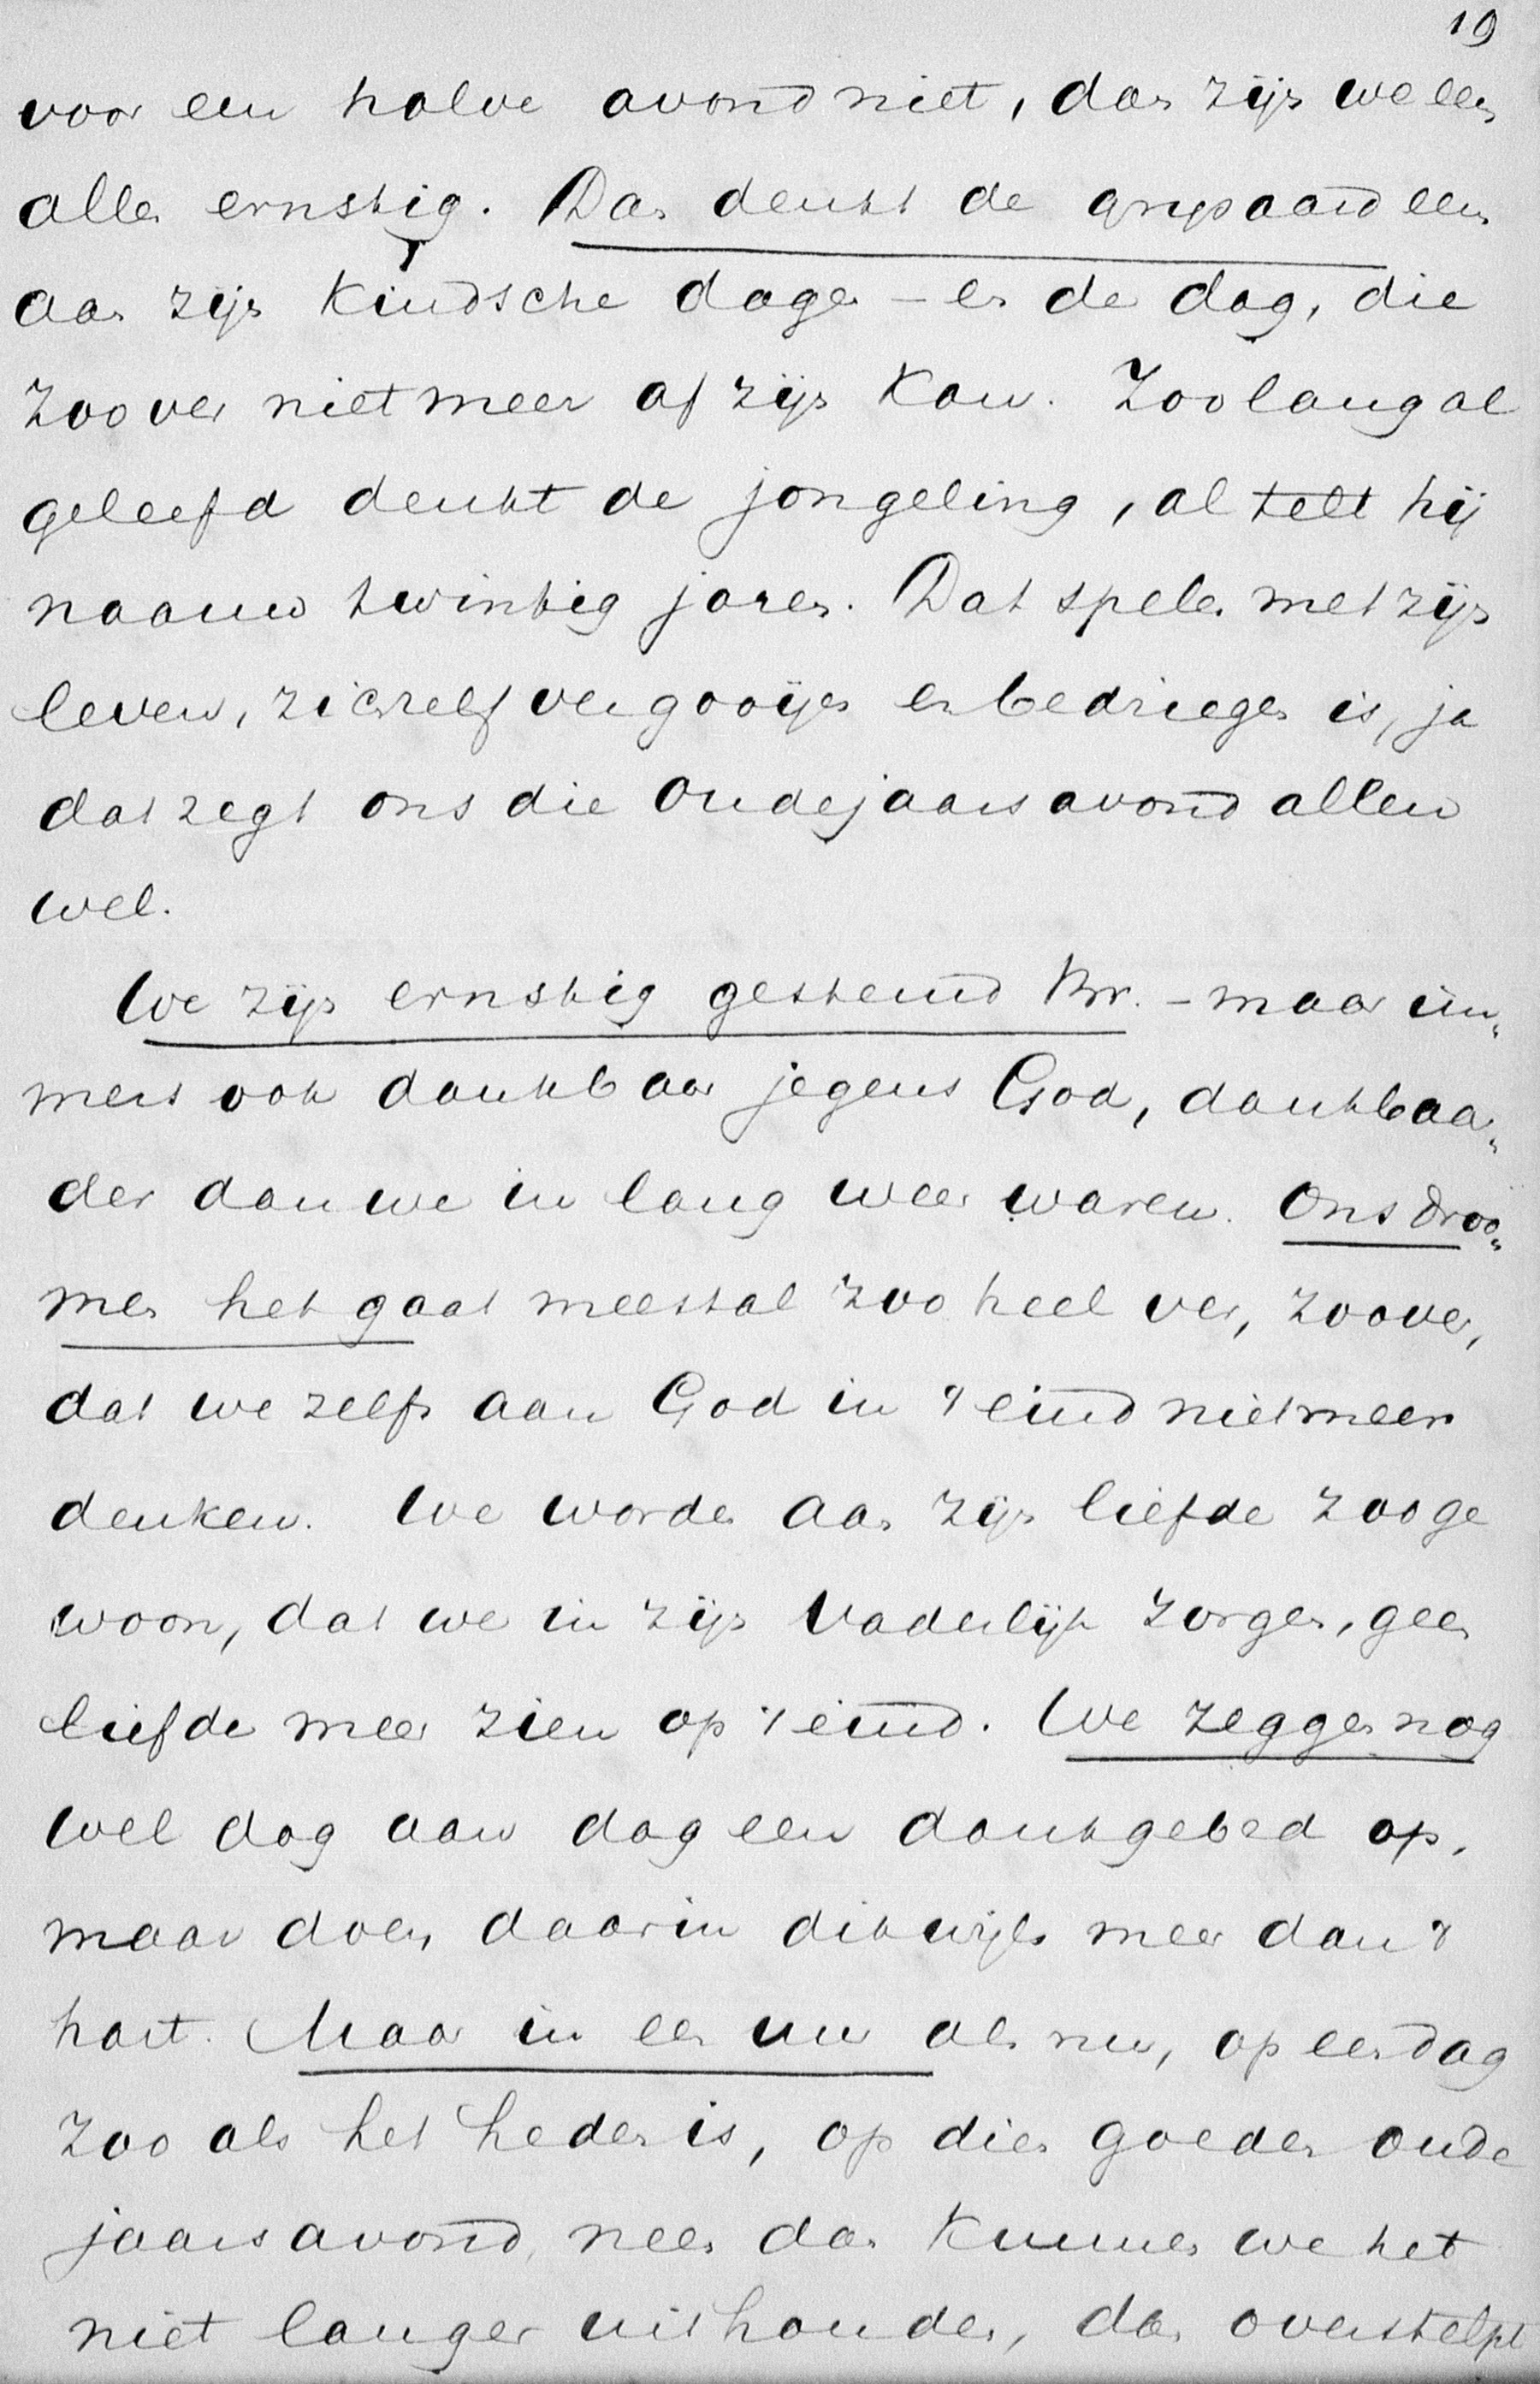 19
voor een halve avond niet, dan zijn we een
alle ernstig. Dan denkt de grijsaard een
aan zijn kindsche dagen – en de dag, die
zoo ver niet meer af zijn kan. Zoo lang al
geleefd denkt de jongeling, al telt hij
naauw twintig jaren. Dat spelen met zijn
leven, zichzelf vergooijen en bedriegen is, ja
dat zegt ons die Oudejaarsavond allen
wel.
We zijn ernstig gestemd Br. – maar im„
mers ook dankbaar jegens God, dankbaa„
der dan we in lang weer waren. Ons droo„
men het gaat meestal zoo heel ver, zoo ver,
dat we zelfs aan God in 't eind niet meer
denken. We worden aan zijn liefde zoo ge
woon, dat we in zijn Vaderlijk zorgen, geen
liefde meer zien op 't eind. We zeggen nog
wel dag aan dag een dankgebed op,
maar doen daarin dikwijls meer dan 't
hart. Maar in een uur als nu, op een dag
zoo als het heden is, op dien goeden oude
jaarsavond, neen dan kunnen we het
niet langer uithouden, dan overstelpt